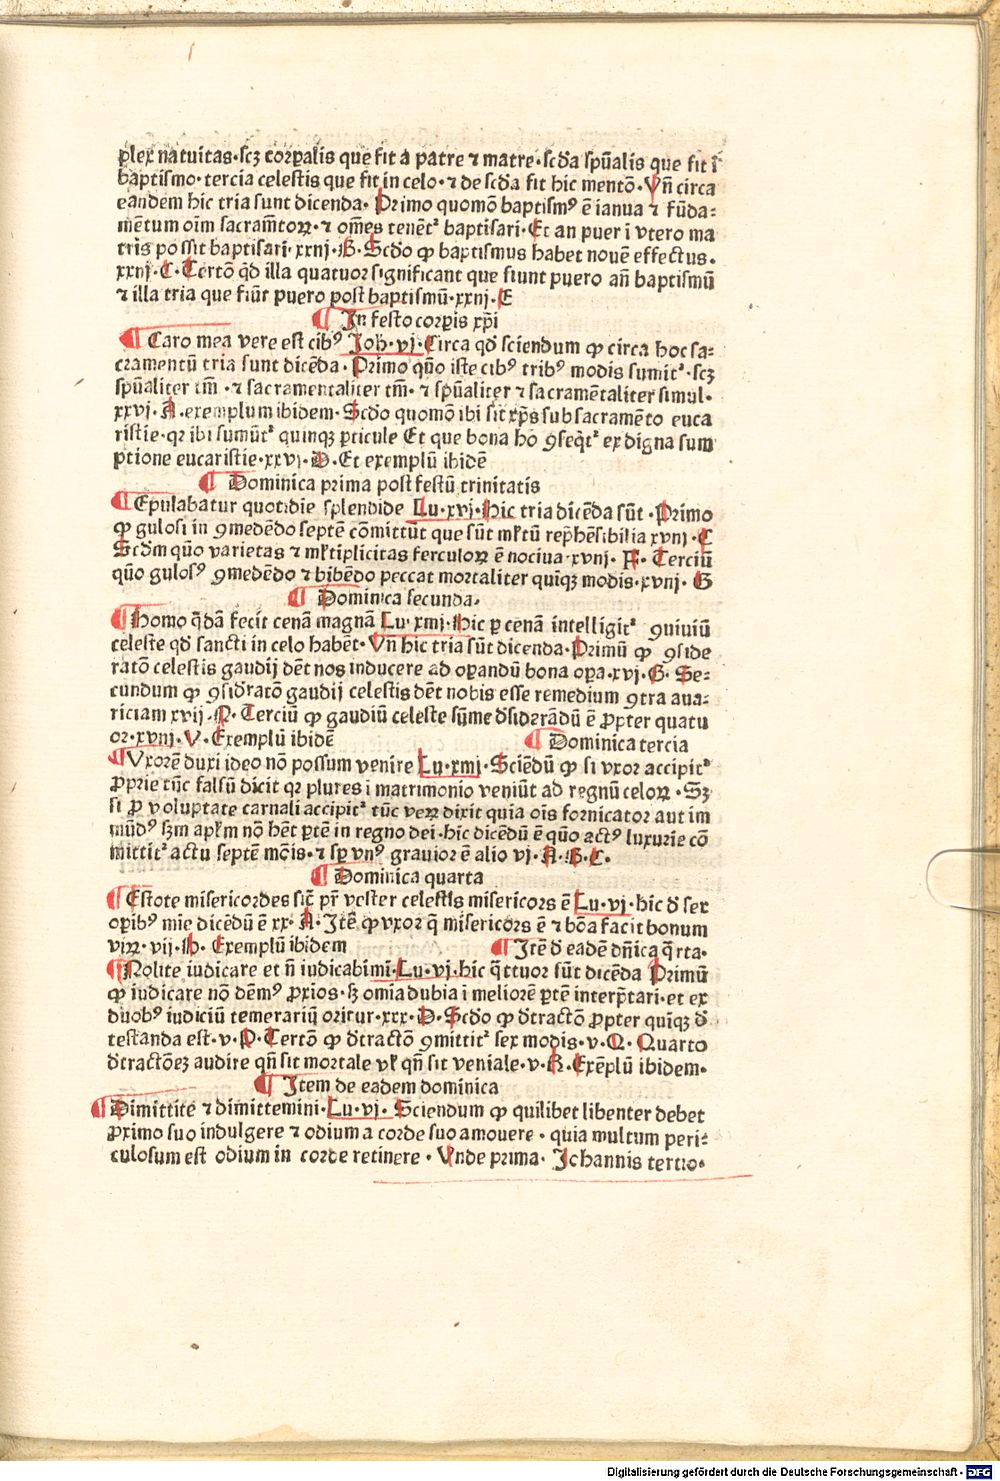 plex natiuitas·scꝫ corꝑalis que fit a patre ⁊ matre·scďa spũalis que fit ĩ
baptismo·tercia celestis que fit in celo·⁊ de scďa fit hic mentõ·Vñ circa
eandem hic tria sunt dicenda·Primo quomõ baptismꝰ ẽ ianua ⁊ fũda⸗
mẽtum oĩm sacram̃torꝝ·⁊ om̃es tenẽt᷑ baptisari·Et an puer ĩ vtero ma
tris possit baptisari·xxnj·B·Scďo ꝙ baptismus habet nouẽ effectus·
xxnj·C·Tertõ qď illa quatuor significant que fiunt puero añ baptismũ
⁊ illa tria que fiũt puero post baptismũ·xxnj·E
¶ In festo corꝑis xp̃i
¶ Caro mea vere est cibꝰ Joh̃·vj·Circa qď sciendum ꝙ circa hoc sa⸗
cramentũ tria sunt dicẽda·Primo quõ iste cibꝰ tribꝰ modis sumit᷑·scꝫ
spũaliter tm̃·⁊ sacramentaliter tm̃·⁊ spũaliter ⁊ sacramẽtaliter simul·
xxvj·A·exemplum ibidem·Scďo quomõ ibi sit xp̃s sub sacramẽto euca
ristie·qꝛ ibi sumũt᷑ quinqꝫ ꝑticule Et que bona hõ ꝯseq̃t᷑ ex digna sum
ptione eucaristie·xxvj·D·Et exemplũ ibidẽ
¶ Dominica prima post festũ trinitatis
¶ Epulabatur quotidie splendide Lu·xvj·Hic tria dicẽda sũt·Primo
ꝙ gulosi in ꝯmedẽdo septẽ cõmittũt que sũt ml̃tũ rep̃hẽsibilia xvnj·C
Scďm quõ varietas ⁊ ml̃tiplicitas ferculorꝝ ẽ nociua·xvnj·F·Terciũ
quõ gulosꝰ ꝯmedẽdo ⁊ bibẽdo peccat mortaliter quĩqꝫ modis·xvnj·G
¶ Dominica secunda·
¶ Homo q̃dã fecit cenã magnã Lu·xmj·Hic ꝑ cenã intelligit᷑ ꝯuiuiũ
celeste qď sancti in celo habẽt·Vñ hic tria sũt dicenda·Primũ ꝙ ꝯside
ratõ celestis gaudij dẽt nos inducere ad oꝑandũ bona oꝑa·xvj·G·Se⸗
cundum ꝙ ꝯsiďratõ gaudij celestis dẽt nobis esse remedium ꝯtra aua⸗
riciam xvij·P·Terciũ ꝙ gaudiũ celeste sũme ďsiderãdũ ẽ ꝓpter quatu
or·xvnj·V·Exemplũ ibidẽ ¶ Dominica tercia
¶ Vxorẽ duxi ideo nõ possum venire Lu·xmj·Sciẽdũ ꝙ si vxor accipit᷑
ꝓprie tũc falsũ dicit qꝛ plures ĩ matrimonio veniũt ad regnũ celorꝝ·Sꝫ
si ꝓ voluptate carnali accipit᷑ tũc verꝝ dixit quia oĩs fornicator aut im
mũdꝰ sm̃ apl̃m nõ hẽt ꝑtẽ in regno dei·hic dicẽdũ ẽ quõ actꝰ luxurie cõ
mittit᷑ actu septẽ mõis·⁊ sꝑ vnꝰ grauior ẽ alio vj·A·B·C·
¶ Dominica quarta
¶ Estote misericordes sic̃ pr̃ vester celestis misericors ẽ Lu·vj·hic ď sex
oꝑibꝰ mie dicẽdũ ẽ xx·A·Itẽ ꝙ vxor q̃ misericors ẽ ⁊ bõa facit bonum
virꝝ·vij·H·Exemplũ ibidem ¶ Itẽ ď eadẽ dñica q̃rta·
¶ Nolite iudicare et ñ iudicabimĩ·Lu·vj·hic q̃ttuor sũt dicẽda Primũ
ꝙ iudicare nõ dẽmꝰ ꝓxĩos·sꝫ om̃ia dubia ĩ meliorẽ ꝑtẽ interp̃tari·et ex
duobꝰ iudiciũ temerariũ oritur·xxx·D·Scďo ꝙ ďtractõ ꝓpter quĩqꝫ ď
testanda est·v·P·Tertõ ꝙ ďtractõ ꝯmittit᷑ sex modis·v·Q·Quarto
ďtractõeꝫ audire qñ sit mortale vl̃ qñ sit veniale·v·R·Exẽplũ ibidem·
¶ Item de eadem dominica
¶ Dimittite ⁊ dimittemini·Lu·vj·Sciendum ꝙ quilibet libenter debet
ꝓximo suo indulgere ⁊ odium a corde suo amouere·quia multum peri⸗
culosum est odium in corde retinere·Vnde prima·Iohannis tertio·
Digitalisierung gefördert durch die Deutsche Forschungsgemeinschaft - DFG